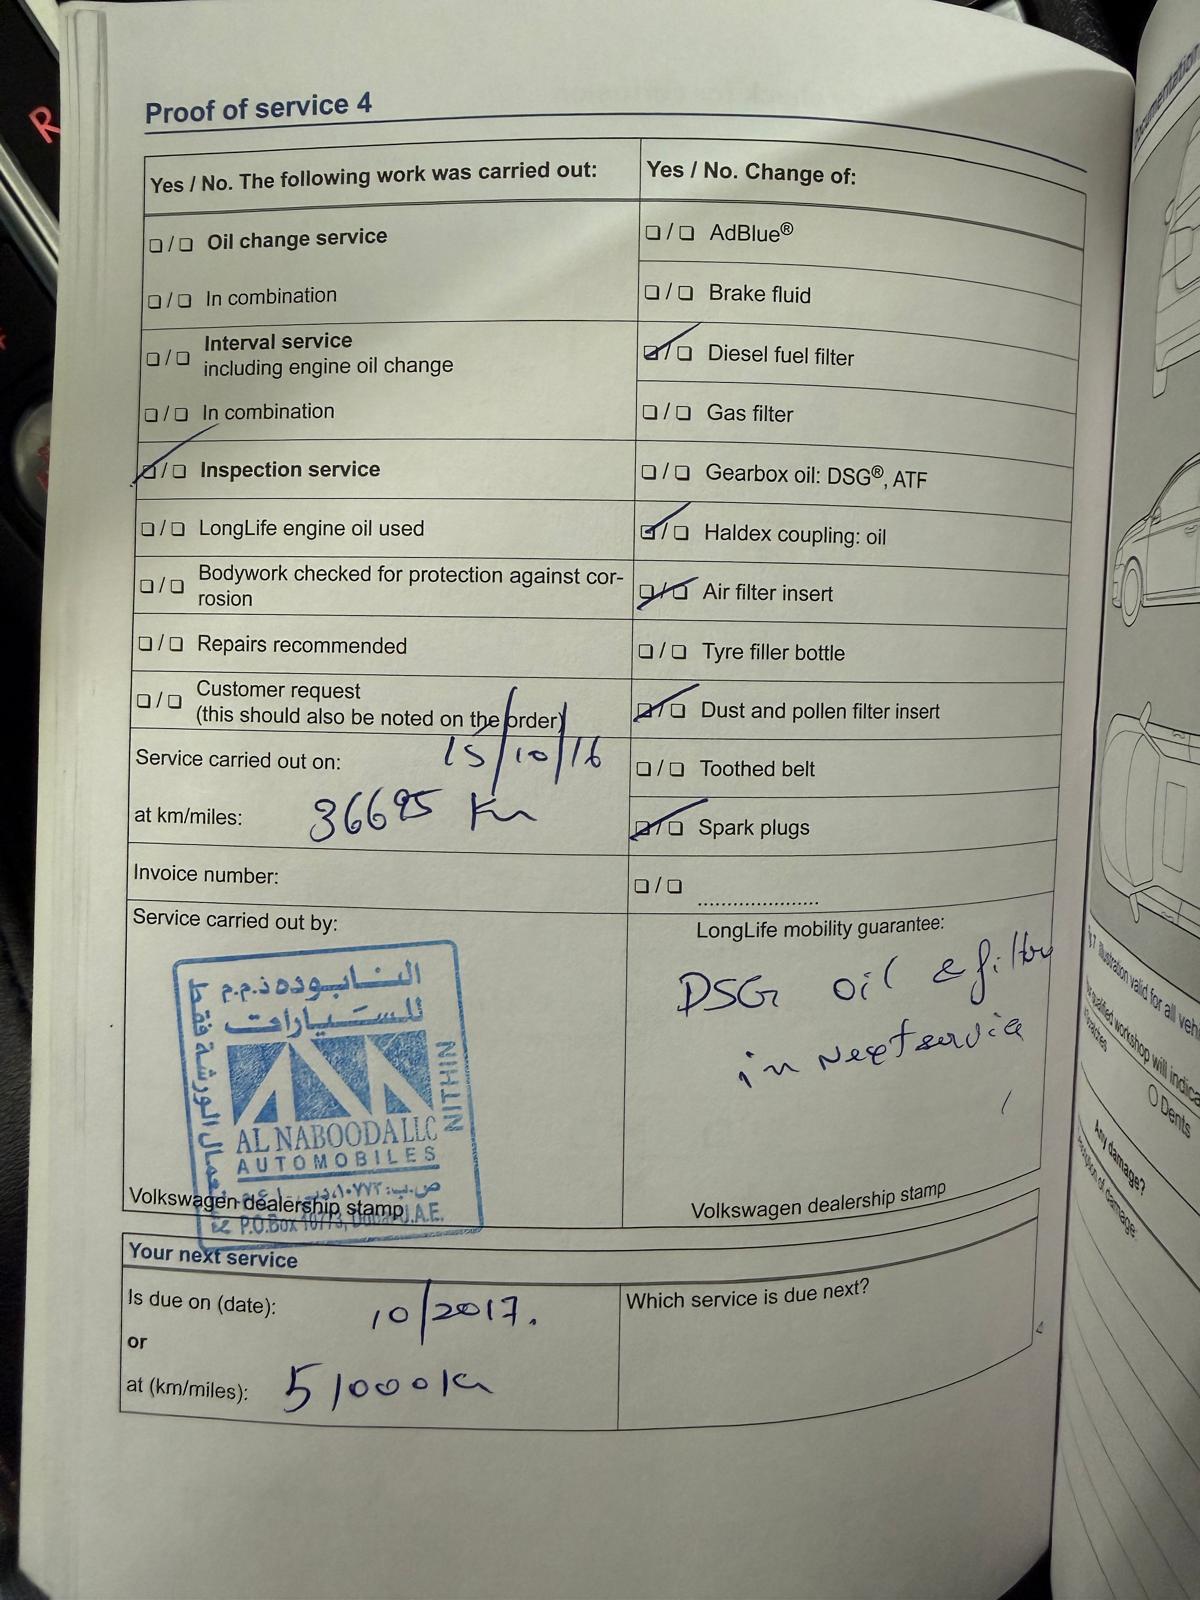 Proof of service 4
Yes / No. The following work was carried out:
❑ / ❑ Oil change service
❑ / ❑ In combination
❑ / ❑ Interval service
including engine oil change
❑ / ❑ In combination
❑ / ❑ Inspection service
❑ / ❑ LongLife engine oil used
❑ / ❑ Bodywork checked for protection against cor-
rosion
❑ / ❑ Repairs recommended
❑ / ❑ Customer request
(this should also be noted on the order)
Service carried out on: 15/10/16
at km/miles: 36695 Km
Invoice number:
Service carried out by:
النابوده ذ.م.م
للسيارات
لأعمال الورشة فقط
NITHIN
AL NABOODA LLC
AUTOMOBILES
ص.ب: ١٠٧٧٣، دبي، ا.ع.م
P.O.Box 10773, Dubai U.A.E.
Volkswagen dealership stamp
Yes / No. Change of:
❑ / ❑ AdBlue®
❑ / ❑ Brake fluid
❑ / ❑ Diesel fuel filter
❑ / ❑ Gas filter
❑ / ❑ Gearbox oil: DSG®, ATF
❑ / ❑ Haldex coupling: oil
❑ / ❑ Air filter insert
❑ / ❑ Tyre filler bottle
❑ / ❑ Dust and pollen filter insert
❑ / ❑ Toothed belt
❑ / ❑ Spark plugs
❑ / ❑ .....................
LongLife mobility guarantee:
DSG oil & filter
in Next service
Volkswagen dealership stamp
Your next service
Is due on (date): 10/2017.
or
at (km/miles): 51000 Km
Which service is due next?
4
Documentation
illustration valid for all veh
qualified workshop will indica
O Dents
Any damage?
of damage:
R